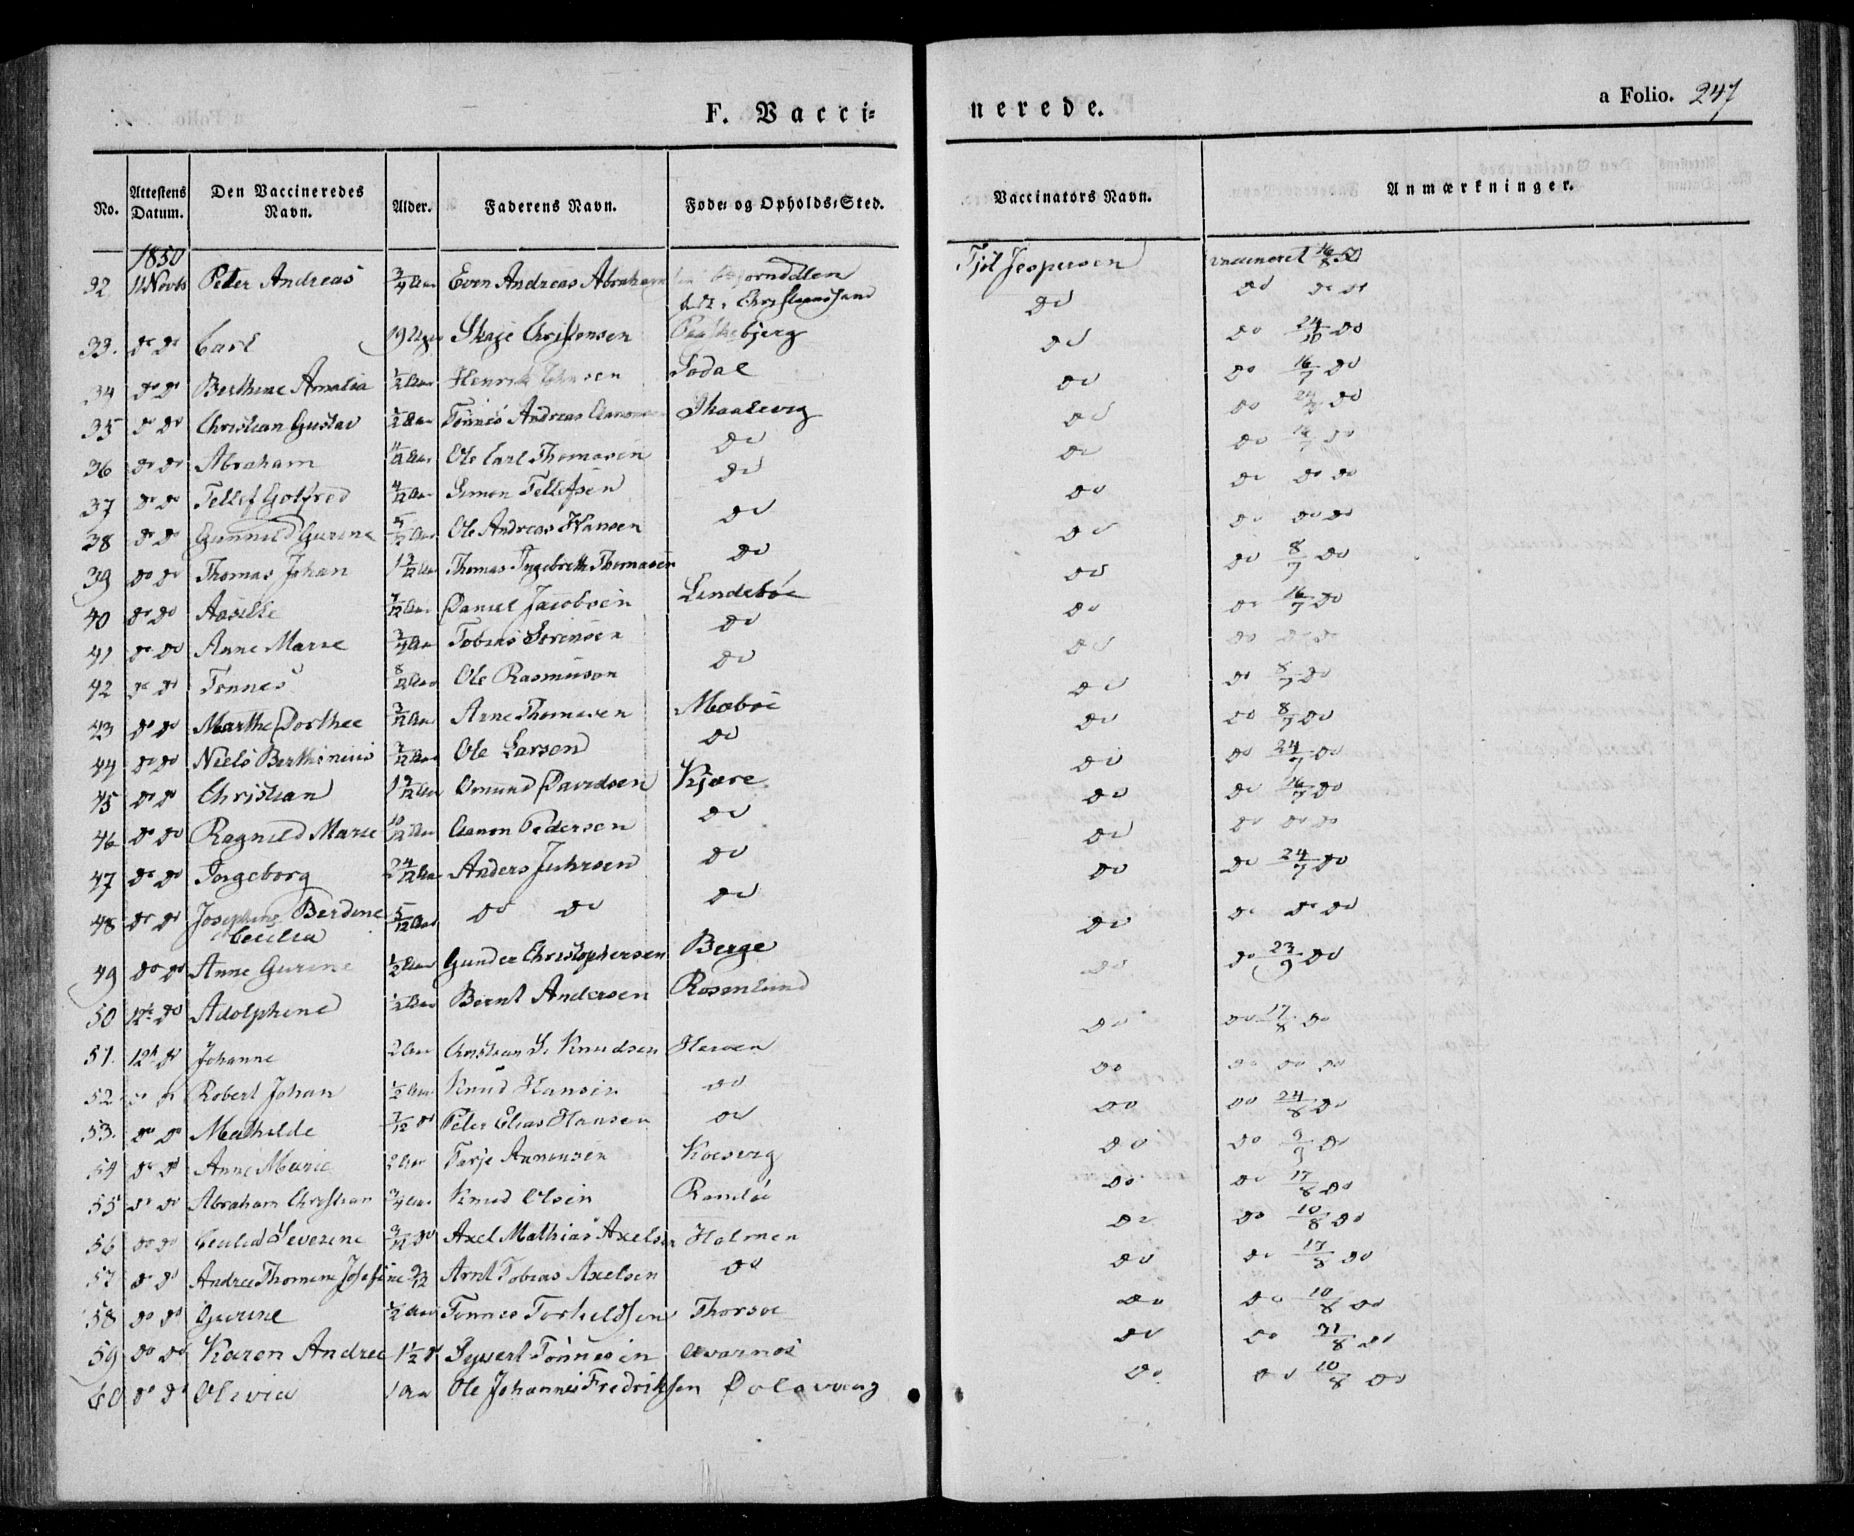 F. Vacci=
nerede.
a Folio. 247
No. Attestens Datum. Den Vaccineredes Navn. Alder. Faderens Navn. Føde= og Opholds=Sted. Vaccinators Navn. Anmærkninger.
1850
32 11 Novb Peter Andreas 3/4 Aar Even Andreas Abraham Tjøl Jespersen vaccineret 16/8 50
d. St. Christianssand do do do
33. do do Carl 19 Uger Skaje Christensen do 24/10 do
34 do do Berthine Amalia 1/2 Aar Sodal do 16/7 do
35 do do Christian Gustav 1/2 Aar Tönnes Andreas Skaalevig do do
36 do do Abraham Aar Ole Carl Thomasen do do do do
37 do do Tellef Gotfred 4/12 Aar Simon Tellefsen do do do do do
38 do do Gunnild Gurine Ole Andreas Hansen do do do do do
39 do do Thomas Johan Thomas Ingebreth Thomasen do do do 8/7 do
40 do do Aasille 7/12 Aar Daniel Jacobsen Lindeböe do do 16/7 do
41 do do Anne Marie 3/4 Aar Tobias Sörensen do do do do do
42 do do Tönnes 8/12 Aar Ole Rasmuson do do do 8/7 do
43 do do Marthe Dorthee 3/12 Aar Arne Thomesen Mæböe do do 8/7 do
44 do do Niels Berthinius Ole Larsen do do do 24/7 do
45 do do Christian Omund Davidsen Kjære do do 16/7 do
46 do do Ragnild Marie 10/12 Aar Aanon Pedersen do do do do do
47 do do Ingeborg 2 4/12 Aar Anders Juhrsen do do do 24/7 do
48 do do Josephine Berdine Cecilia 5/12 Aar do do do do do do do
49 do do Anne Gurine 1/2 Aar Gunder Christophersen Berge do do 23/9 do
50 12te do Adolphine 1/2 Aar Bernt Andersen Rosenlund do do 17/8 do
51. 12te do Johanne 2 Aar Christian S. Knudsen Herøen do do do do
52 do do Robert Johan 1/2 Aar Knud Hansen do do do 24/8 do
53. do do Mathilde 7/12 do Peter Elias Hansen do do do 9/9 do
54 do do Anne Marie 2 Aar Tarje Anmonsen do do 17/8 do
55 do do Abraham Christian 3/4 Aar Knud Olsen Randöe do do 10/8 do
56 do do Cecilia Severine do Axel Mathias Axelsen Holmen do do 17/8 do
57 do do Andree Thomine Josefine Arnt Tobias Axelsen do do do 10/8 do
58 do do Gurine 1/2 Aar Tönnes Torkeldsen Thorsöe do do 31/8 do
59 do do Karen Andree 1 1/2 do Syvert Tönnesen do do 10/8 do
60 do do Olivia 1 Aar Ole Johannes Fredriksen Dolsvaag